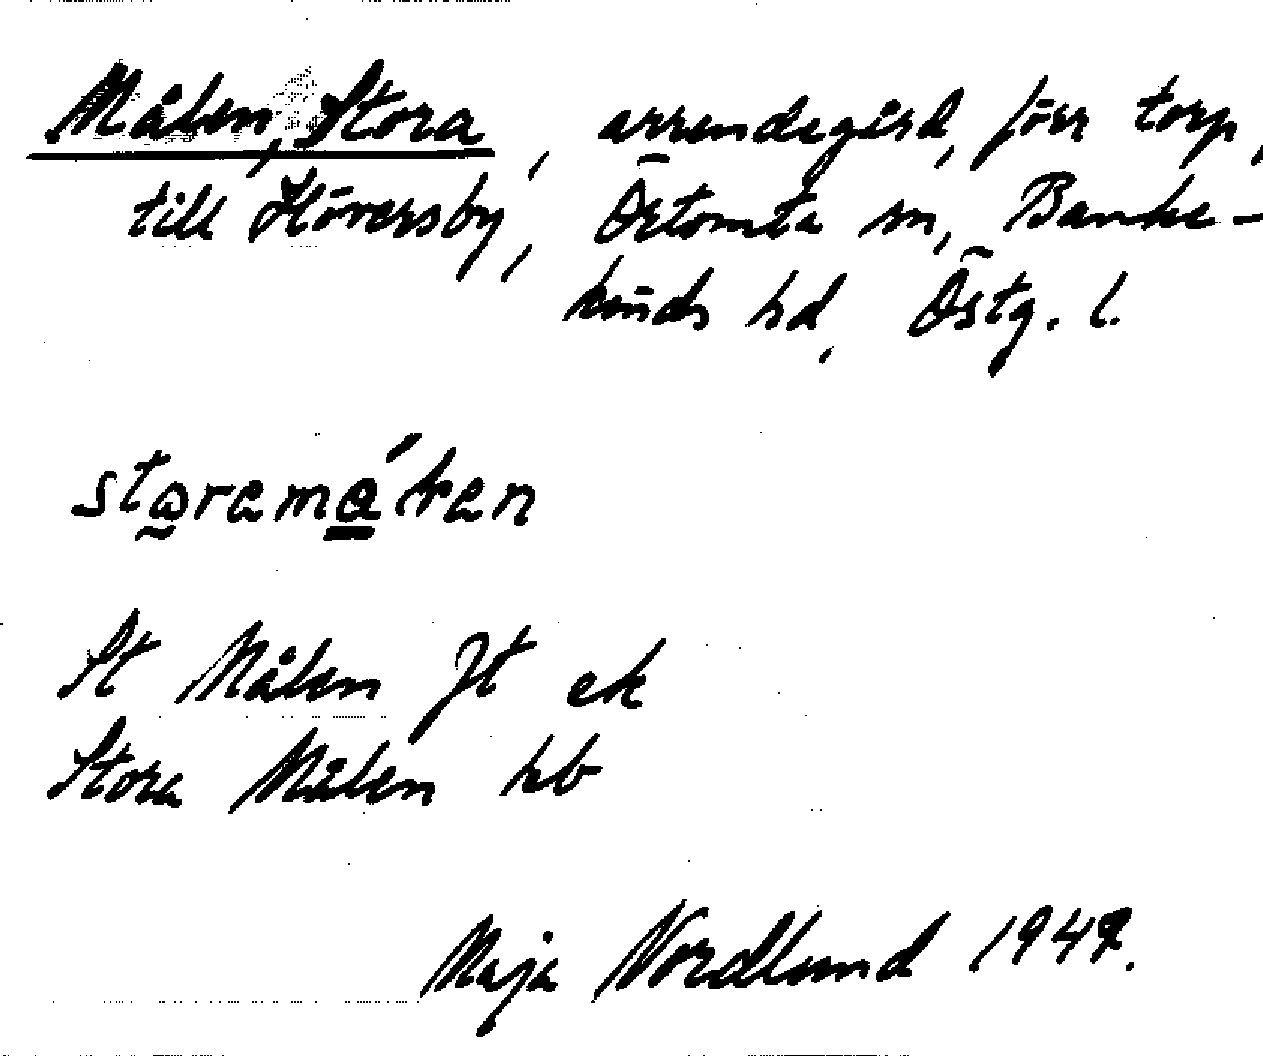 Målen, Stora, arrendegård, förr torp,
till Höversby, Östomta sn, Banke-
kinds hd, Östg. l.
St Målen Jt ek
Stora Målen hb
Maja Nordlund 1947.